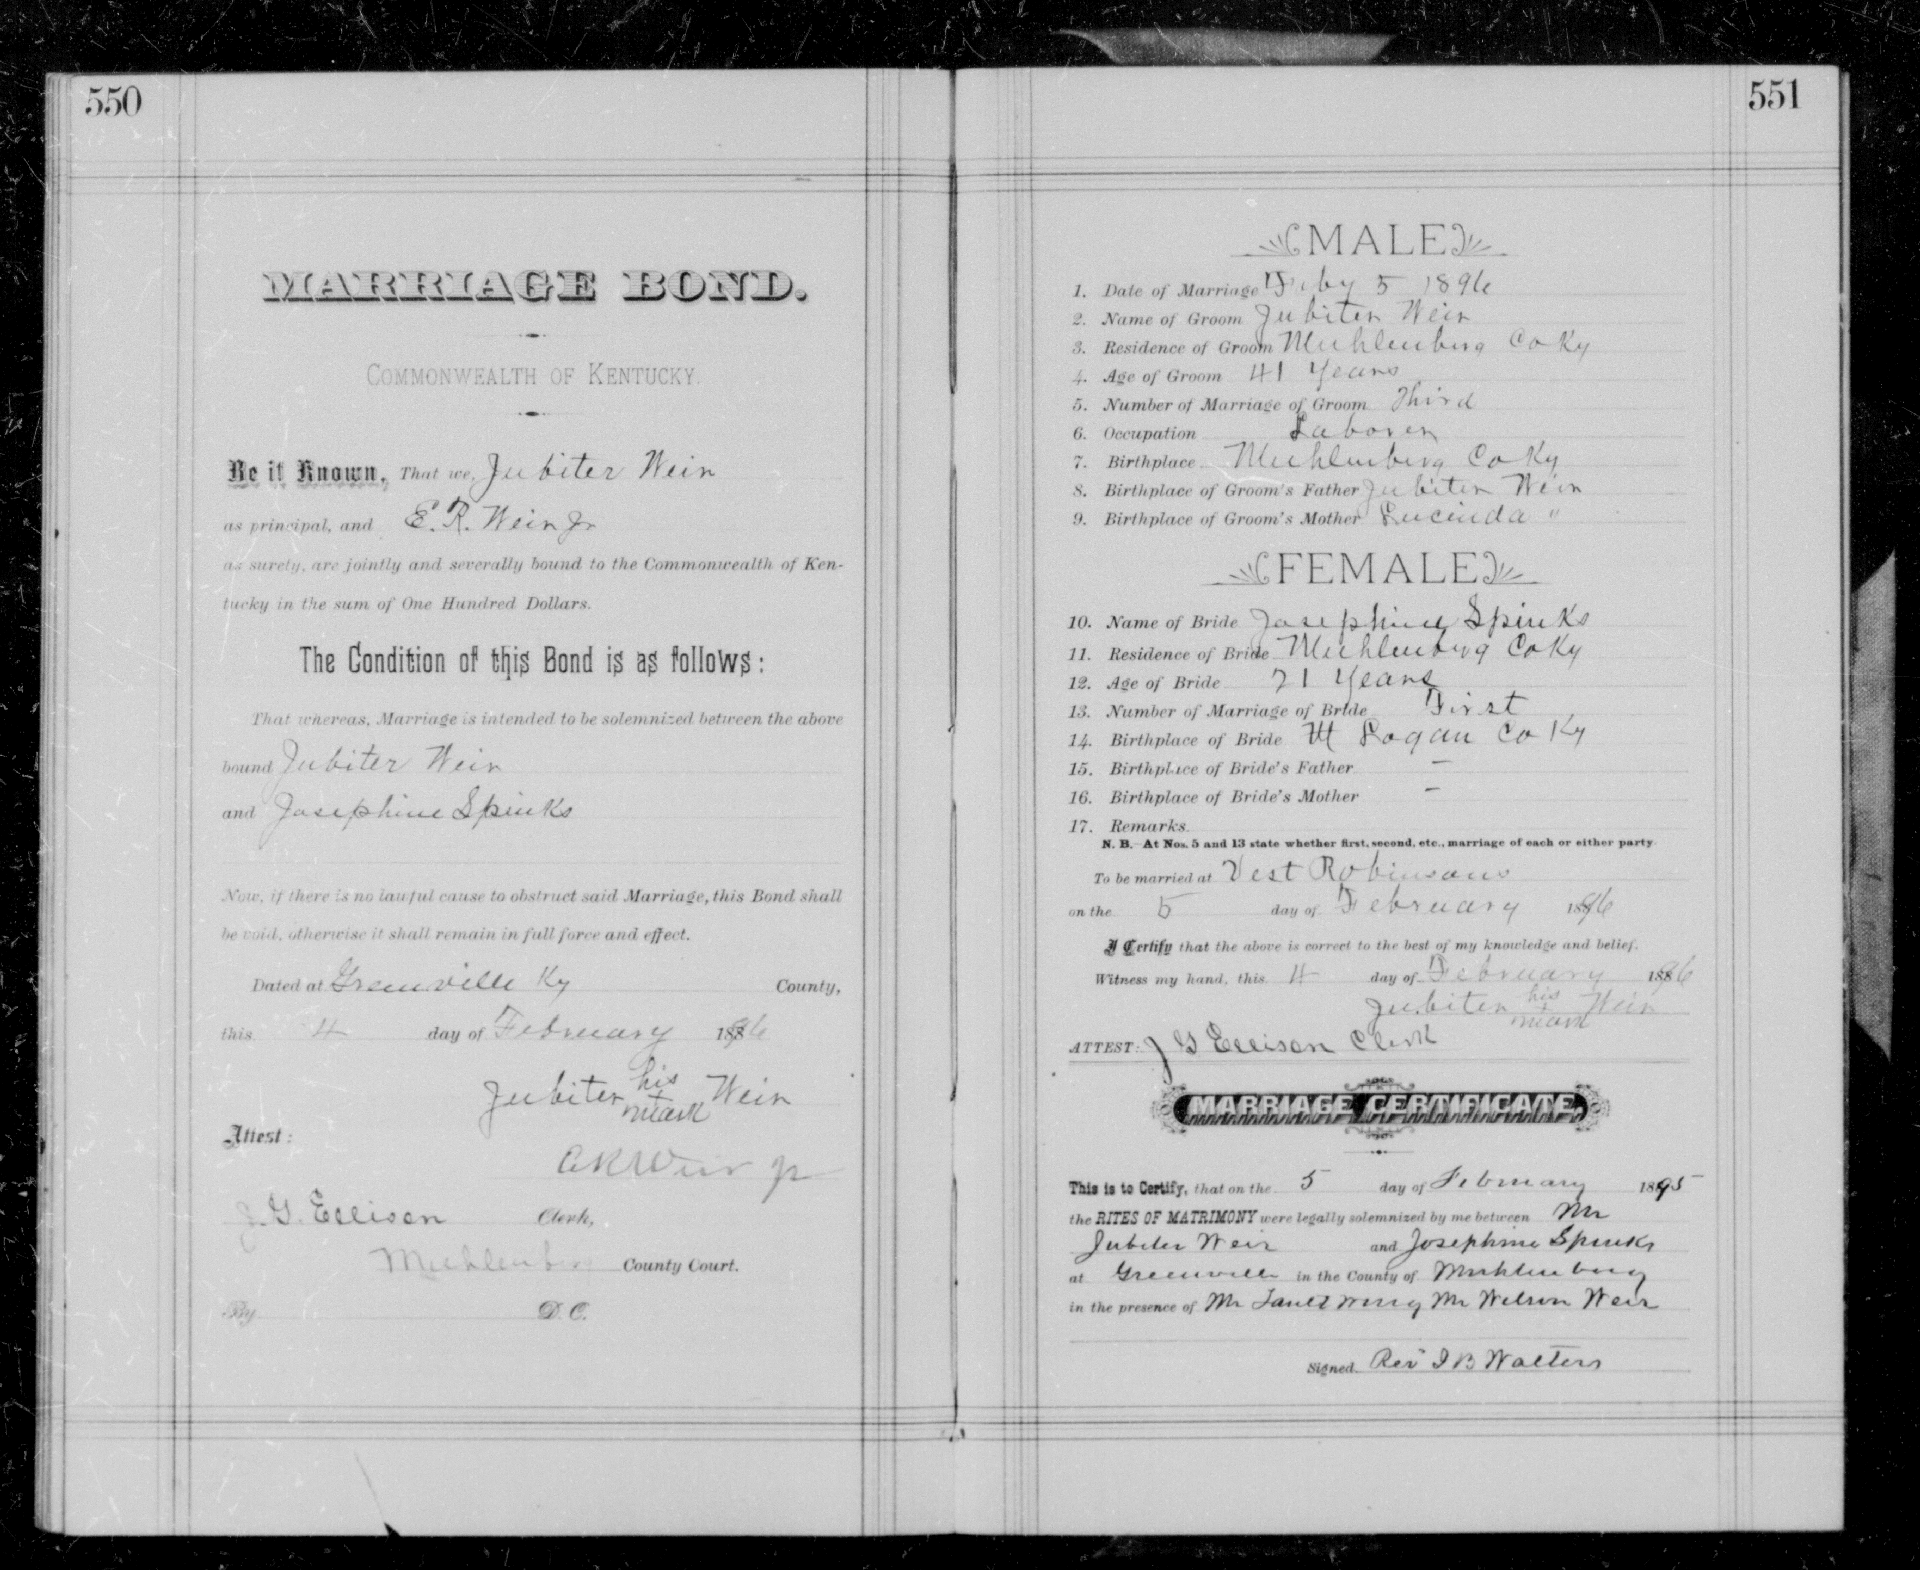 550
MARRIAGE BOND.
COMMONWEALTH OF KENTUCKY.
Be it Known, That we, Jubiter Weir
as principal, and E. R. Weir Jr
as surety, are jointly and severally bound to the Commonwealth of Ken-
tucky in the sum of One Hundred Dollars.
The Condition of this Bond is as follows:
That whereas, Marriage is intended to be solemnized between the above
bound Jubiter Weir
and Josephine Spinks
Now, if there is no lawful cause to obstruct said Marriage, this Bond shall
be void, otherwise it shall remain in full force and effect.
Dated at Greenville Ky County,
this 4 day of February 1896
Jubiter his x mark Weir
Attest:
Weir Jr
J. G. Ellison Clerk,
Muhlenberg County Court.
By D. C.
551
MALE
1. Date of Marriage Feby 5 1896
2. Name of Groom Jubiter Weir
3. Residence of Groom Muhlenberg Co Ky
4. Age of Groom 41 Years
5. Number of Marriage of Groom Third
6. Occupation Laborer
7. Birthplace Muhlenberg Co Ky
8. Birthplace of Groom's Father Jubiter Weir
9. Birthplace of Groom's Mother Lucinda "
FEMALE
10. Name of Bride Josephine Spinks
11. Residence of Bride Muhlenberg Co Ky
12. Age of Bride 21 Years
13. Number of Marriage of Bride First
14. Birthplace of Bride Logan Co Ky
15. Birthplace of Bride's Father -
16. Birthplace of Bride's Mother -
17. Remarks.
N. B. At Nos. 5 and 13 state whether first, second, etc., marriage of each or either party.
To be married at Vest Robinsons
on the 5 day of February 1896
I Certify that the above is correct to the best of my knowledge and belief.
Witness my hand, this 4 day of February 1896
Jubiter his x mark Weir
ATTEST: J G Ellison Clerk
MARRIAGE CERTIFICATE.
This is to Certify, that on the 5 day of February 1895
the RITES OF MATRIMONY were legally solemnized by me between Mr
Jubiter Weir and Josephine Spinks
at Greenville in the County of Muhlenberg
in the presence of Mr Mr Wilson Weir
Signed Rev J B Walters